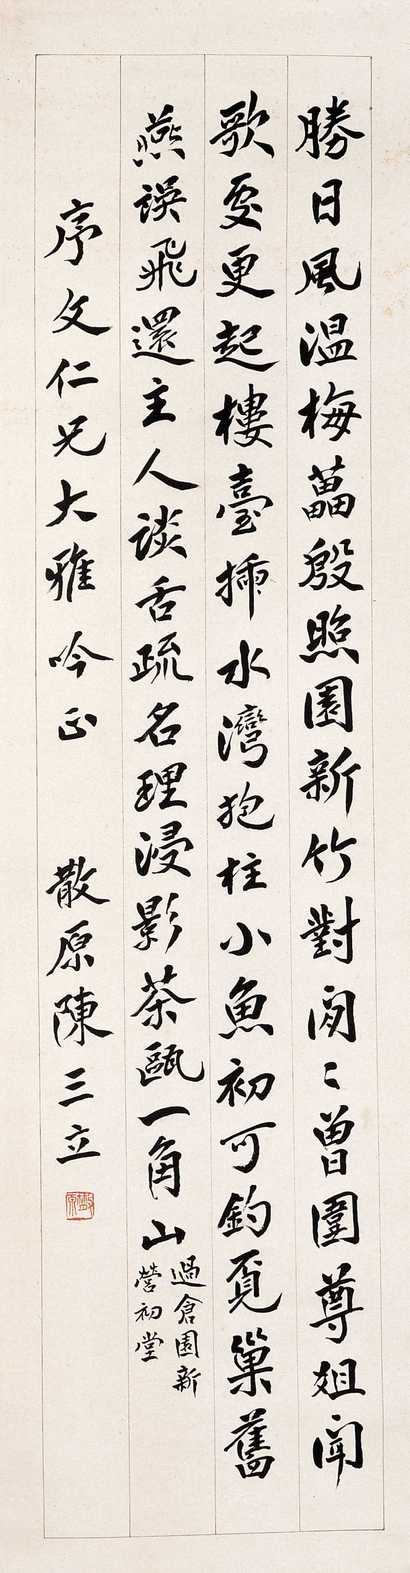 勝日風温梅萼殷照園新竹對閑〻曾圍尊俎聞
歌處更起樓臺揷水灣抱柱小魚初可釣覓巢舊
燕誤飛還主人談舌疏名理浸影茶甌一角山
過倉園新
營初堂
序文仁兄大雅吟正 散原陳三立
散原